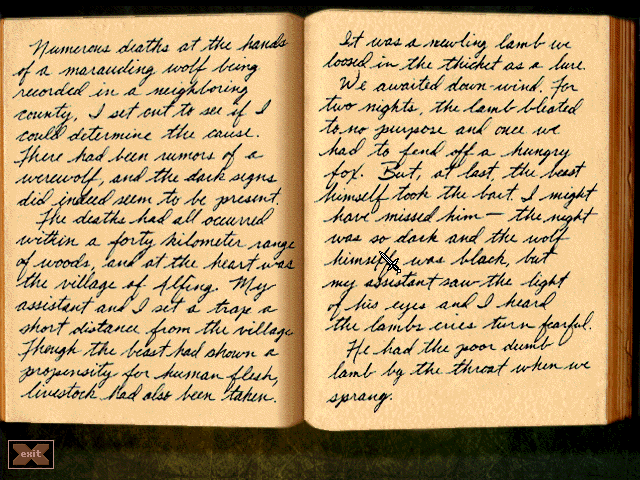 Numerous deaths at the hands
of a marauding wolf being
recorded in a neighboring
county, I set out to see if I
could determine the cause.
There had been rumors of a
werewolf, and the dark signs
did indeed seem to be present.
The deaths had all occurred
within a forty kilometer range
of woods, and at the heart was
the village of Alling. My
assistant and I set a trap a
short distance from the village
Though the beast had shown a
propensity for human flesh,
livestock had also been taken.
It was a mewling lamb we
loosed in the thicket as a lure.
We awaited down-wind. For
two nights, the lamb bleated
to no purpose and once we
had to fend off a hungry
fox. But, at last, the beast
himself took the bait. I might
have missed him — the night
was so dark and the wolf
himself was black, but
my assistant saw the light
of his eyes and I heard
the lambs cries turn fearful.
He had the poor dumb
lamb by the throat when we
sprang.
exit